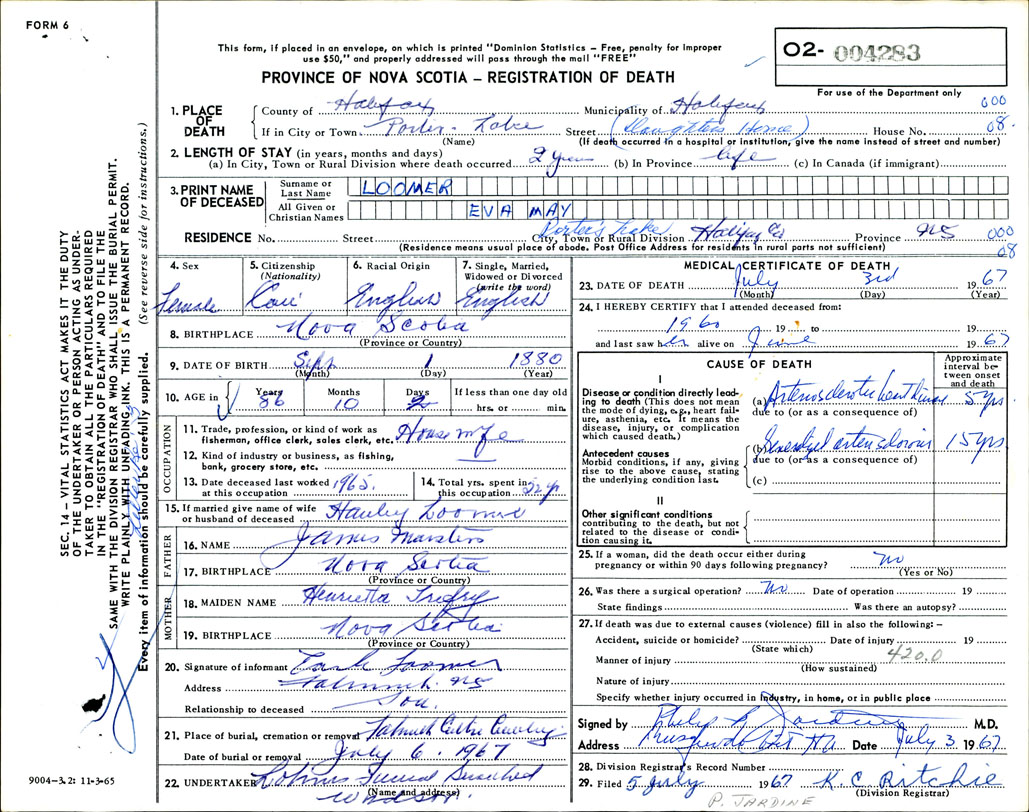 FORM 6
This form, if placed in an envelope, on which is printed "Dominion Statistics – Free, penalty for improper
use $50," and properly addressed will pass through the mail "FREE"
PROVINCE OF NOVA SCOTIA – REGISTRATION OF DEATH
02- 004283
For use of the Department only
000
08.
1. PLACE OF DEATH
County of Halifax Municipality of Halifax
If in City or Town Porters Lake Street (Daughters Home) House No.
(Name) (If death occurred in a hospital or institution, give the name instead of street and number)
2. LENGTH OF STAY (in years, months and days)
(a) In City, Town or Rural Division where death occurred 2 years (b) In Province life (c) In Canada (if immigrant)
3. PRINT NAME OF DECEASED
Surname or Last Name LOOMER
All Given or Christian Names EVA MAY
RESIDENCE No. Street Porter's Lake City, Town or Rural Division Halifax Co Province NS 000
(Residence means usual place of abode. Post Office Address for residents in rural parts not sufficient) 08
4. Sex Female
5. Citizenship (Nationality) Can
6. Racial Origin English
7. Single, Married, Widowed or Divorced (write the word) English
8. BIRTHPLACE Nova Scotia
(Province or Country)
9. DATE OF BIRTH Sept 1 1880
(Month) (Day) (Year)
10. AGE in Years 86 Months 10 Days 2 If less than one day old hrs. or min.
OCCUPATION
11. Trade, profession, or kind of work as
fisherman, office clerk, sales clerk, etc. Housewife
12. Kind of industry or business, as fishing,
bank, grocery store, etc.
13. Date deceased last worked at this occupation 1965.
14. Total yrs. spent in this occupation 52 yr
15. If married give name of wife
or husband of deceased Loomer
FATHER
16. NAME James Marsters
17. BIRTHPLACE Nova Scotia
(Province or Country)
MOTHER
18. MAIDEN NAME Henrietta Trefry
19. BIRTHPLACE Nova Scotia
(Province or Country)
20. Signature of informant Earle Loomer
Address Falmouth NS
Relationship to deceased Son.
21. Place of burial, cremation or removal Falmouth Centre Cemetery
Date of burial or removal July 6, 1967
22. UNDERTAKER Funeral
(Name and address) Windsor.
MEDICAL CERTIFICATE OF DEATH
23. DATE OF DEATH July 3rd 1967
(Month) (Day) (Year)
24. I HEREBY CERTIFY that I attended deceased from:
1960 , 19 to 19
and last saw her alive on June 1967
CAUSE OF DEATH
Approximate interval between onset and death
I
Disease or condition directly leading to death (This does not mean the mode of dying, e.g., heart failure, asthenia, etc. It means the disease, injury, or complication which caused death.)
(a) Arteriosclerotic heart disease 5 yrs
due to (or as a consequence of)
Antecedent causes
Morbid conditions, if any, giving rise to the above cause, stating the underlying condition last.
(b) Generalized arteriosclerosis 15 yrs
due to (or as a consequence of)
(c)
II
Other significant conditions
contributing to the death, but not related to the disease or condition causing it.
25. If a woman, did the death occur either during
pregnancy or within 90 days following pregnancy? no
(Yes or No)
26. Was there a surgical operation? No Date of operation 19
State findings Was there an autopsy?
27. If death was due to external causes (violence) fill in also the following: –
Accident, suicide or homicide? Date of injury 19
(State which) 420.0
Manner of injury
(How sustained)
Nature of injury
Specify whether injury occurred in industry, in home, or in public place
Signed by Philip Jardine M.D.
Address Musquodoboit Date July 3 1967
28. Division Registrar's Record Number
29. Filed 5 July 1967 K. C. Ritchie
(Division Registrar)
P. JARDINE
9004-3.2: 11-3-65
SEC. 14 – VITAL STATISTICS ACT MAKES IT THE DUTY
OF THE UNDERTAKER OR PERSON ACTING AS UNDER-
TAKER TO OBTAIN ALL THE PARTICULARS REQUIRED
IN THE "REGISTRATION OF DEATH" AND TO FILE THE
SAME WITH THE DIVISION REGISTRAR WHO SHALL ISSUE THE BURIAL PERMIT.
WRITE PLAINLY WITH UNFADING INK. THIS IS A PERMANENT RECORD.
Every item of information should be carefully supplied. (See reverse side for instructions.)